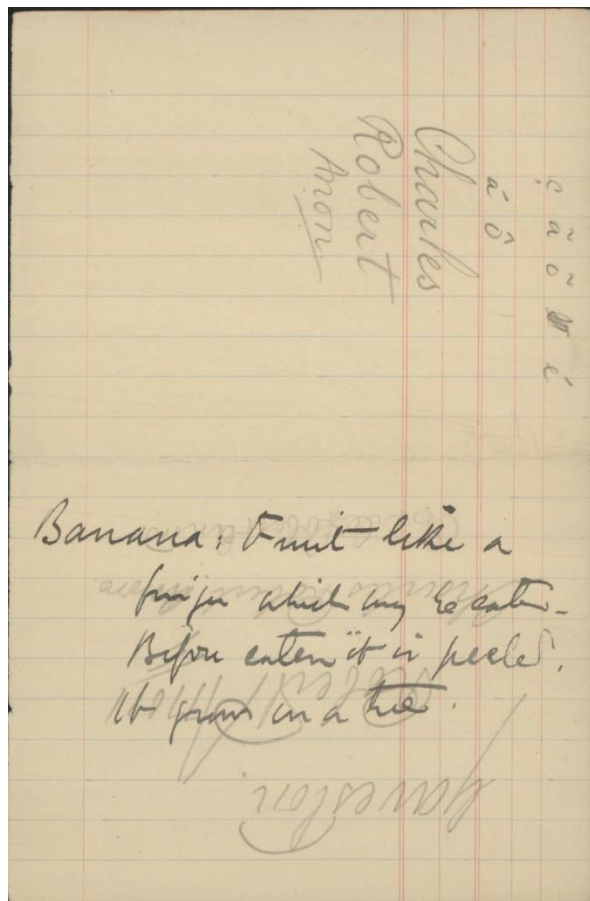 ç ã õ é
á ô
Charles
Robert
Anon
Banana: Fruit like a
finger which may be eaten.
Before eaten it is peeled.
It grows on a tree.
Gaveston.
Robert Anon